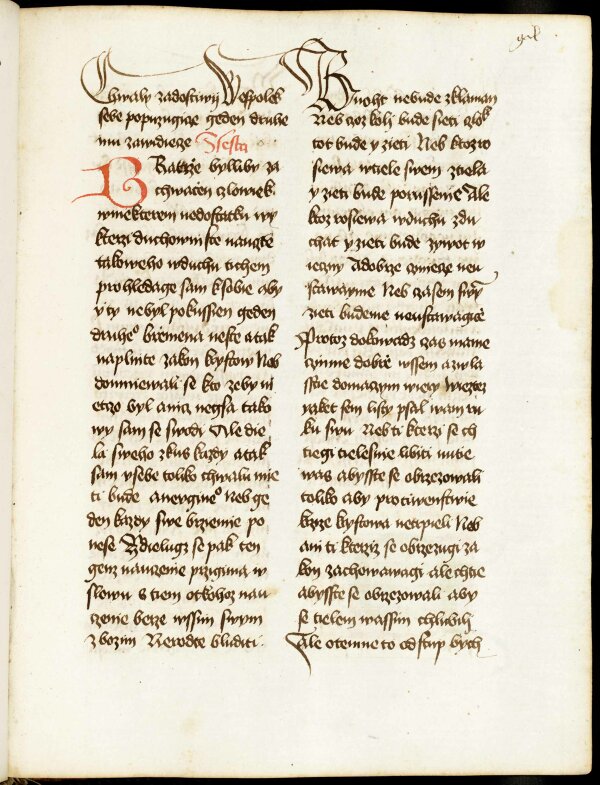 Chwaly zadostiwij Wespolek
sebe popuzugice geden druhe
mu zawidiecze Ssesta
Bratrzie bylliby za
chwacen czlowiek
wniekterem nedostatku wy
kterzi duchowni ste naugte
takoweho wduchu tichem
prohledage sam ksobie aby
y ty nebyl pokussien geden
druheo bremena neste a tak
naplnite zakon krystow Neb
domniewali se kto zeby ni
eczo byl a nicz negsa tako
wy sam se swodi Ale die
la sweho zkus kazdy a tak
sam ysebe toliko chwalu mie
ti bude a neygineo Neb ge
den kazdy swe brziemie po
nese Zdielugz se pak ten
genz nauczenie przigima w
slowu s tiem otkohoz nau
czenie berze wssim swym
zbozim Nerodte bluditi
Buoht nebude zklaman
Neb czoz kolj bude sieti czlok
tot bude y zieti Neb ktozro
siewa wtiele swem ztiela
y zieti bude porussenie Ale
ktoz rosiewa wduchu zdu
chat y zieti bude zywot w
ieczny A dobrze cziniecze neu
stawayme Neb czasem swym
zieti budeme neustawagice
Protoz dokowadz czas mame
czinme dobre wssem a zwla
sstie domaczym wiery Wiezte
yaket sem listy psal wam ru
ku swu Neb ti kterzi se ch
tiegi tielesnie libiti nutie
was abysste se obrzezowali
toliko aby protiwenstwie
krzize krystowa netrpieli Neb
ani ti kterziz se obrzezugi za
kon zachowawagi ale chtie
abysste se obrzezowali aby
se tielem wassim chlubilj
Ale otemne to odstup bych